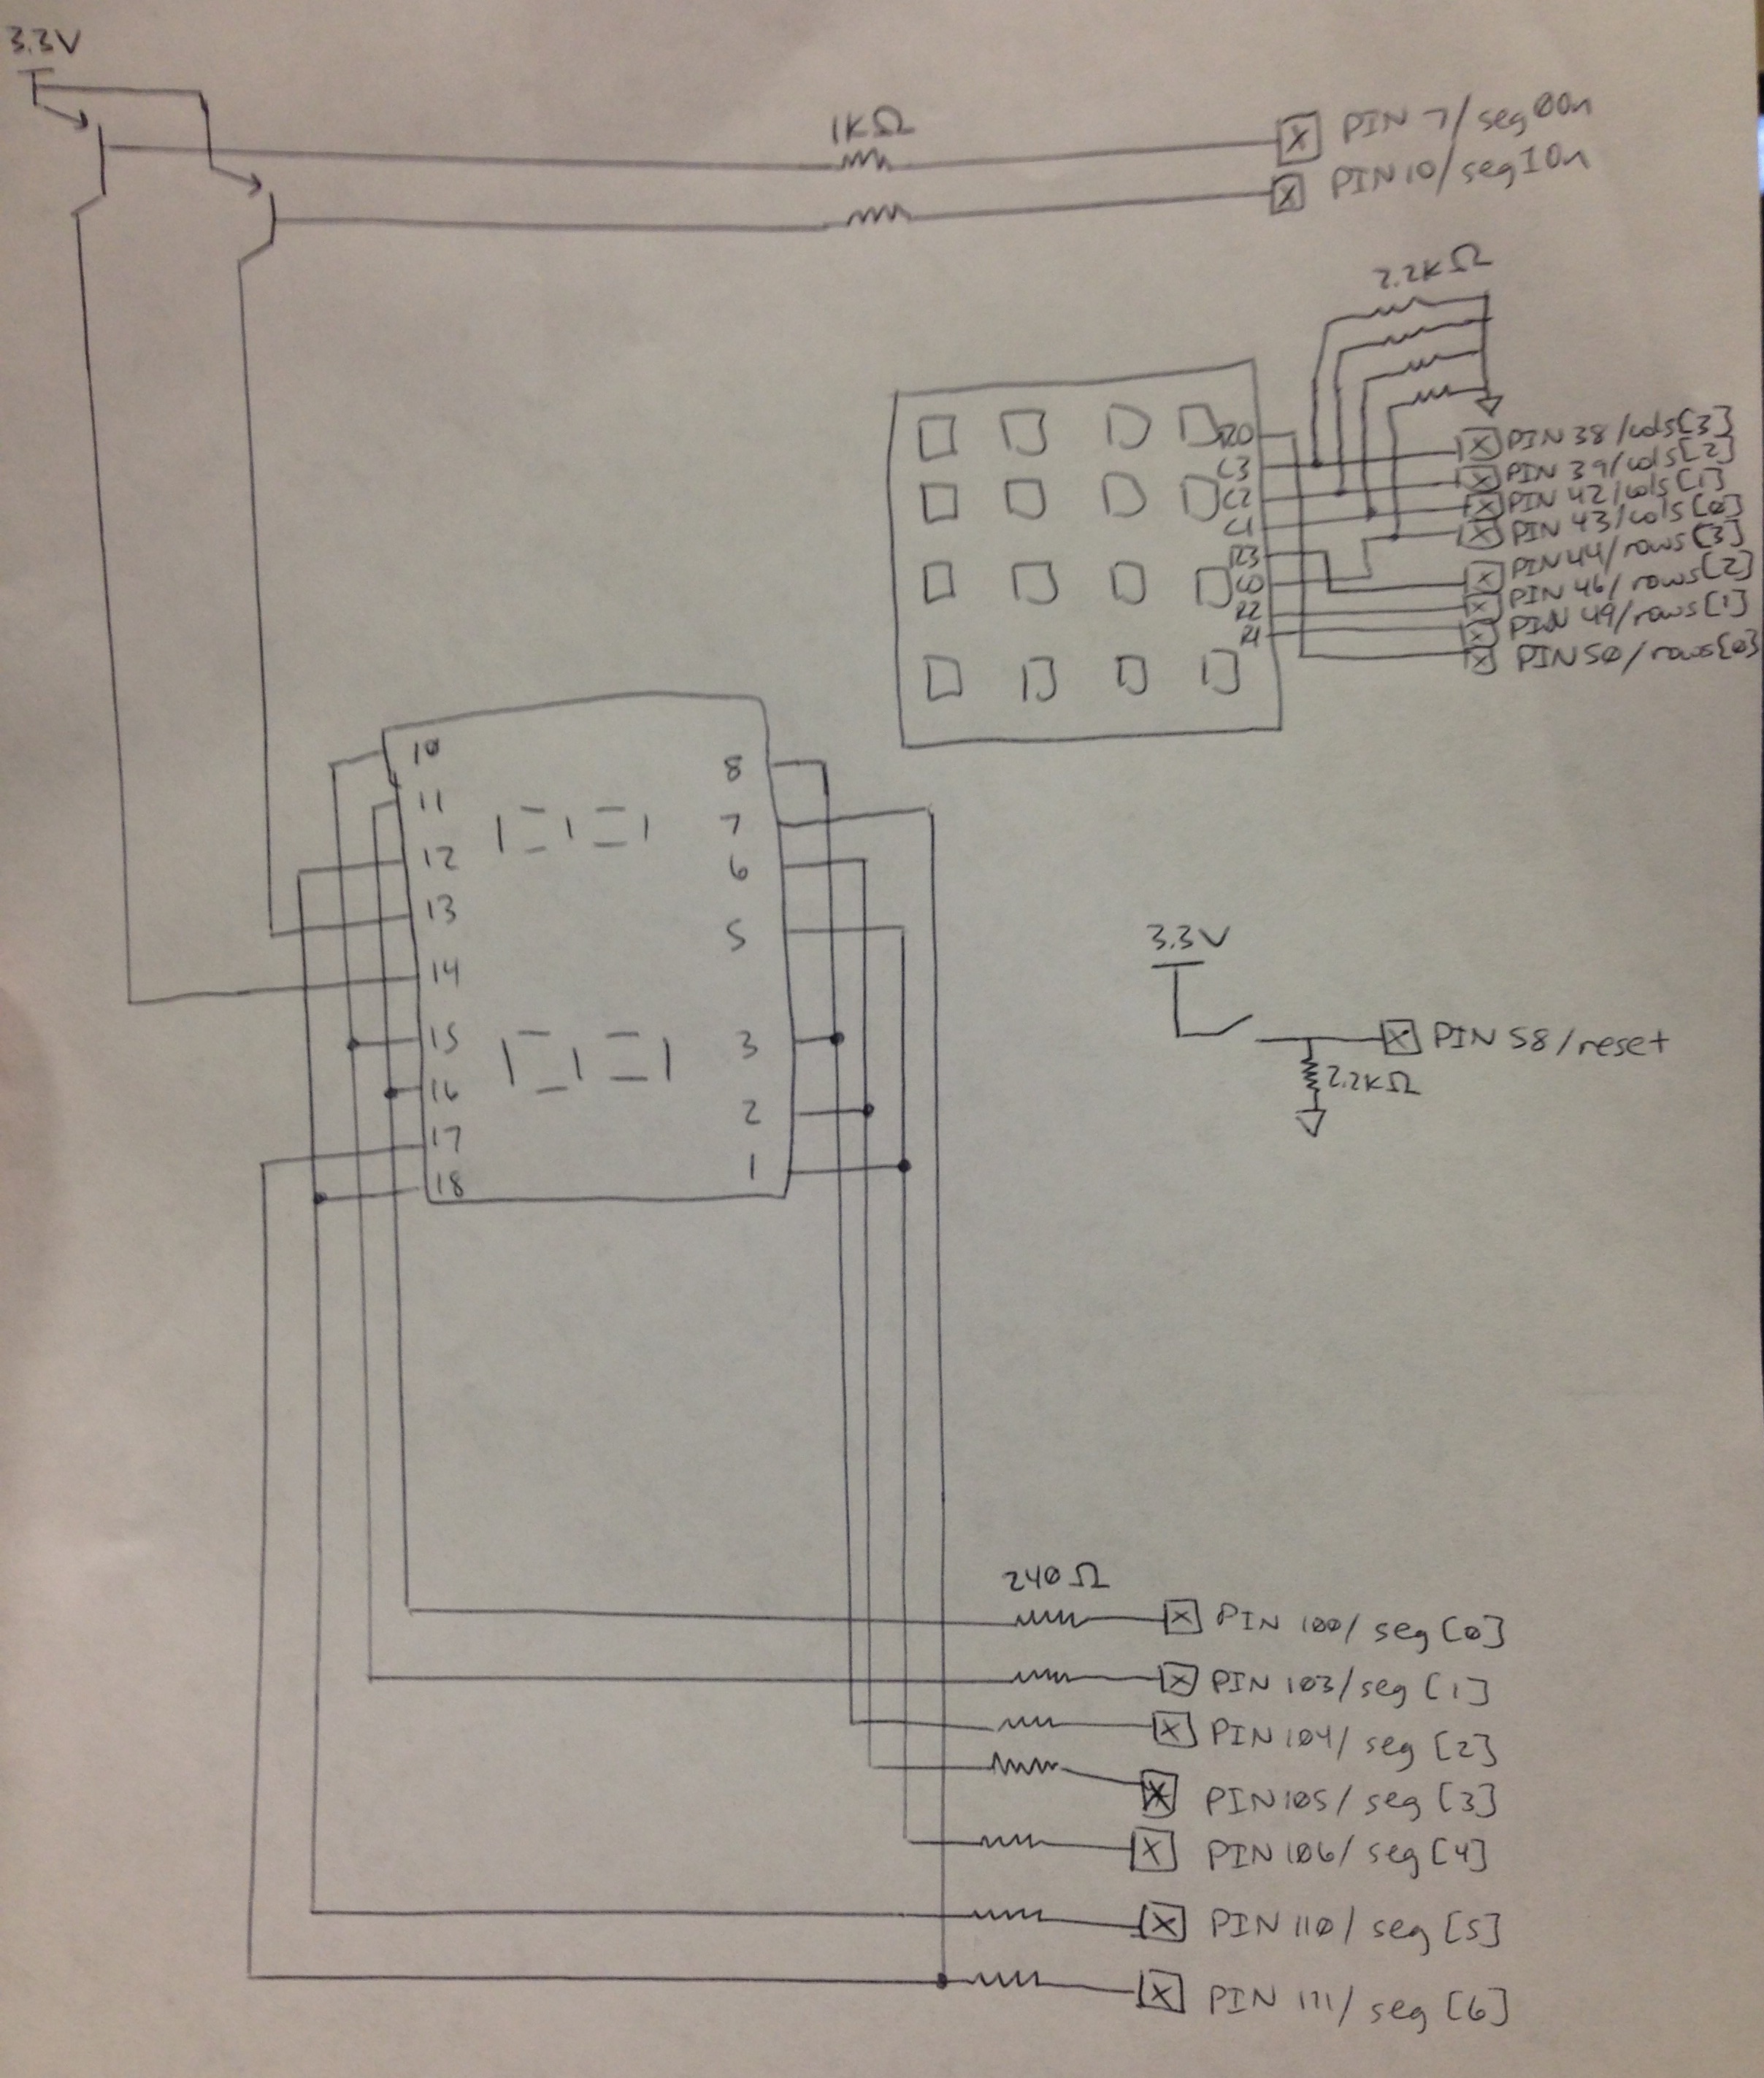 3.3V
1KΩ
PIN 7/seg00n
PIN10/seg10n
2.2KΩ
R0
C3
C2
C1
R3
C0
R2
R1
PIN 38/cols[3]
PIN 39/cols[2]
PIN 42/cols[1]
PIN 43/cols[0]
PIN 44/rows[3]
PIN 46/rows[2]
PIN 49/rows[1]
PIN 50/rows[0]
10
11
12
13
14
15
16
17
18
8
7
6
5
3
2
1
3.3V
PIN 58/reset
2.2KΩ
240Ω
PIN 100/seg[0]
PIN 103/seg[1]
PIN 104/seg[2]
PIN105/seg[3]
PIN 106/seg[4]
PIN 110/seg[5]
PIN 111/seg[6]